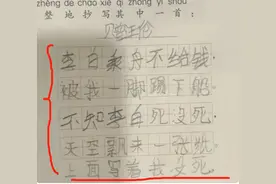 zhěng de chāo xiě qí zhōng yì shǒu
整地抄写其中一首:
赠汪伦
李白乘舟不给钱,
被我一脚踢下船。
不知李白死没死,
天空飘来一张纸,
上面写着我没死。